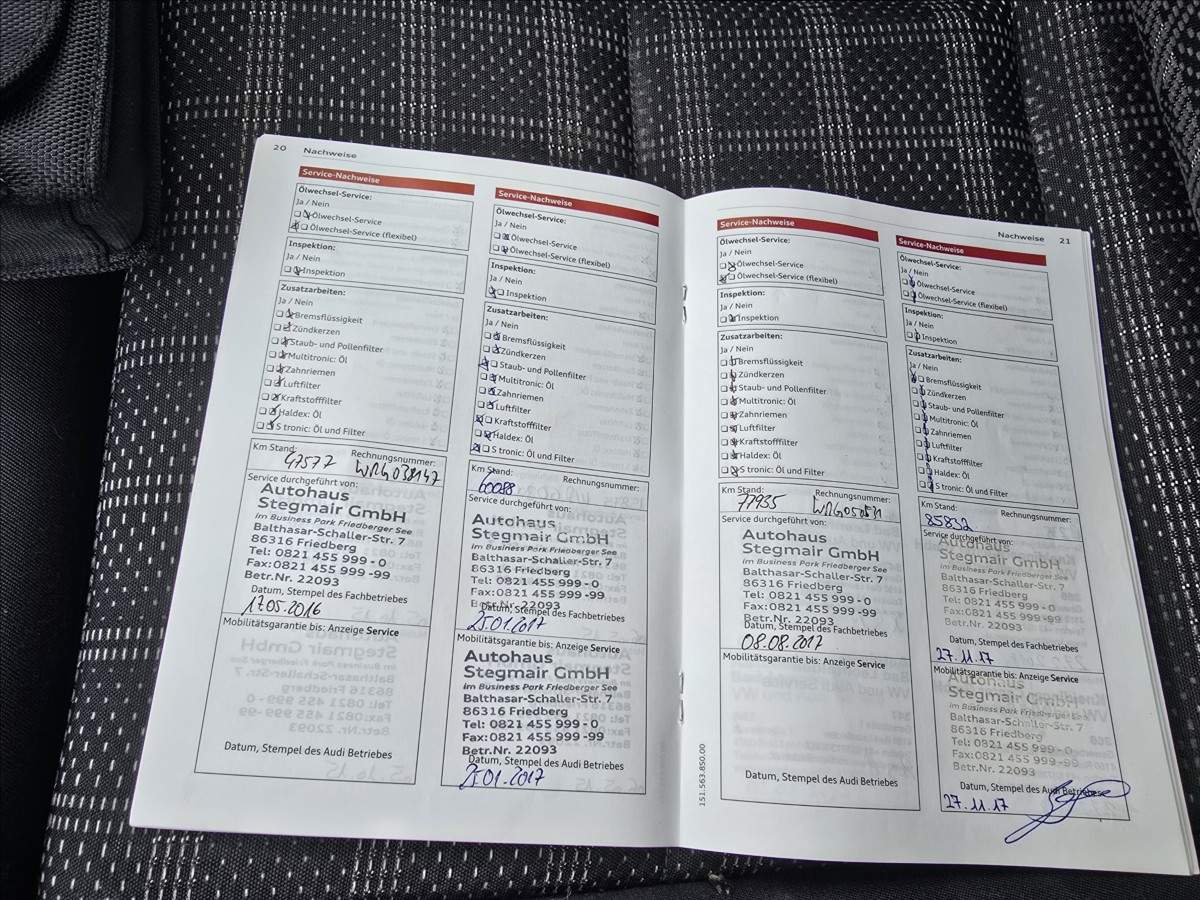 20 Nachweise
Service-Nachweise
Ölwechsel-Service:
Ja / Nein
Ölwechsel-Service
Ölwechsel-Service (flexibel)
Inspektion:
Ja / Nein
Inspektion
Zusatzarbeiten:
Ja / Nein
Bremsflüssigkeit
Zündkerzen
Staub- und Pollenfilter
Multitronic: Öl
Zahnriemen
Luftfilter
Kraftstofffilter
Haldex: Öl
S tronic: Öl und Filter
Km Stand: Rechnungsnummer:
47577
Service durchgeführt von:
Autohaus
Stegmair GmbH
im Business Park Friedberger See
Balthasar-Schaller-Str. 7
86316 Friedberg
Tel: 0821 455 999 - 0
Fax: 0821 455 999 -99
Betr.Nr. 22093
Datum, Stempel des Fachbetriebes
17.05.2016
Mobilitätsgarantie bis: Anzeige Service
Datum, Stempel des Audi Betriebes
Service-Nachweise
Ölwechsel-Service:
Ja / Nein
Ölwechsel-Service
Ölwechsel-Service (flexibel)
Inspektion:
Ja / Nein
Inspektion
Zusatzarbeiten:
Ja / Nein
Bremsflüssigkeit
Zündkerzen
Staub- und Pollenfilter
Multitronic: Öl
Zahnriemen
Luftfilter
Kraftstofffilter
Haldex: Öl
S tronic: Öl und Filter
Km Stand:
60088
Service durchgeführt von:
Autohaus
Stegmair GmbH
im Business Park Friedberger See
Balthasar-Schaller-Str. 7
86316 Friedberg
Tel: 0821 455 999 - 0
Fax: 0821 455 999 -99
Betr.Nr. 22093
Datum, Stempel des Fachbetriebes
25.01.2017
Mobilitätsgarantie bis: Anzeige Service
Autohaus
Stegmair GmbH
im Business Park Friedberger See
Balthasar-Schaller-Str. 7
86316 Friedberg
Tel: 0821 455 999 - 0
Fax: 0821 455 999 -99
Betr.Nr. 22093
Datum, Stempel des Audi Betriebes
25.01.2017
Nachweise 21
Service-Nachweise
Ölwechsel-Service:
Ja / Nein
Ölwechsel-Service
Ölwechsel-Service (flexibel)
Inspektion:
Ja / Nein
Inspektion
Zusatzarbeiten:
Ja / Nein
Bremsflüssigkeit
Zündkerzen
Staub- und Pollenfilter
Multitronic: Öl
Zahnriemen
Luftfilter
Kraftstofffilter
Haldex: Öl
S tronic: Öl und Filter
Km Stand: Rechnungsnummer:
Service durchgeführt von:
Autohaus
Stegmair GmbH
im Business Park Friedberger See
Balthasar-Schaller-Str. 7
86316 Friedberg
Tel: 0821 455 999 - 0
Fax: 0821 455 999 -99
Betr.Nr. 22093
Datum, Stempel des Fachbetriebes
08.08.2017
Mobilitätsgarantie bis: Anzeige Service
Datum, Stempel des Audi Betriebes
151.563.850.00
Service-Nachweise
Ölwechsel-Service:
Ja / Nein
Ölwechsel-Service
Ölwechsel-Service (flexibel)
Inspektion:
Ja / Nein
Inspektion
Zusatzarbeiten:
Ja / Nein
Bremsflüssigkeit
Zündkerzen
Staub- und Pollenfilter
Multitronic: Öl
Zahnriemen
Luftfilter
Kraftstofffilter
Haldex: Öl
S tronic: Öl und Filter
Km Stand: Rechnungsnummer:
85832
Service durchgeführt von:
Autohaus
Stegmair GmbH
im Business Park Friedberger See
Balthasar-Schaller-Str. 7
86316 Friedberg
Tel: 0821 455 999 - 0
Fax: 0821 455 999 -99
Betr.Nr. 22093
Datum, Stempel des Fachbetriebes
27.11.17
Mobilitätsgarantie bis: Anzeige Service
Autohaus
Stegmair GmbH
im Business Park Friedberger See
Balthasar-Schaller-Str. 7
86316 Friedberg
Tel: 0821 455 999 - 0
Fax: 0821 455 999 -99
Betr.Nr. 22093
Datum, Stempel des Audi Betriebes
27.11.17